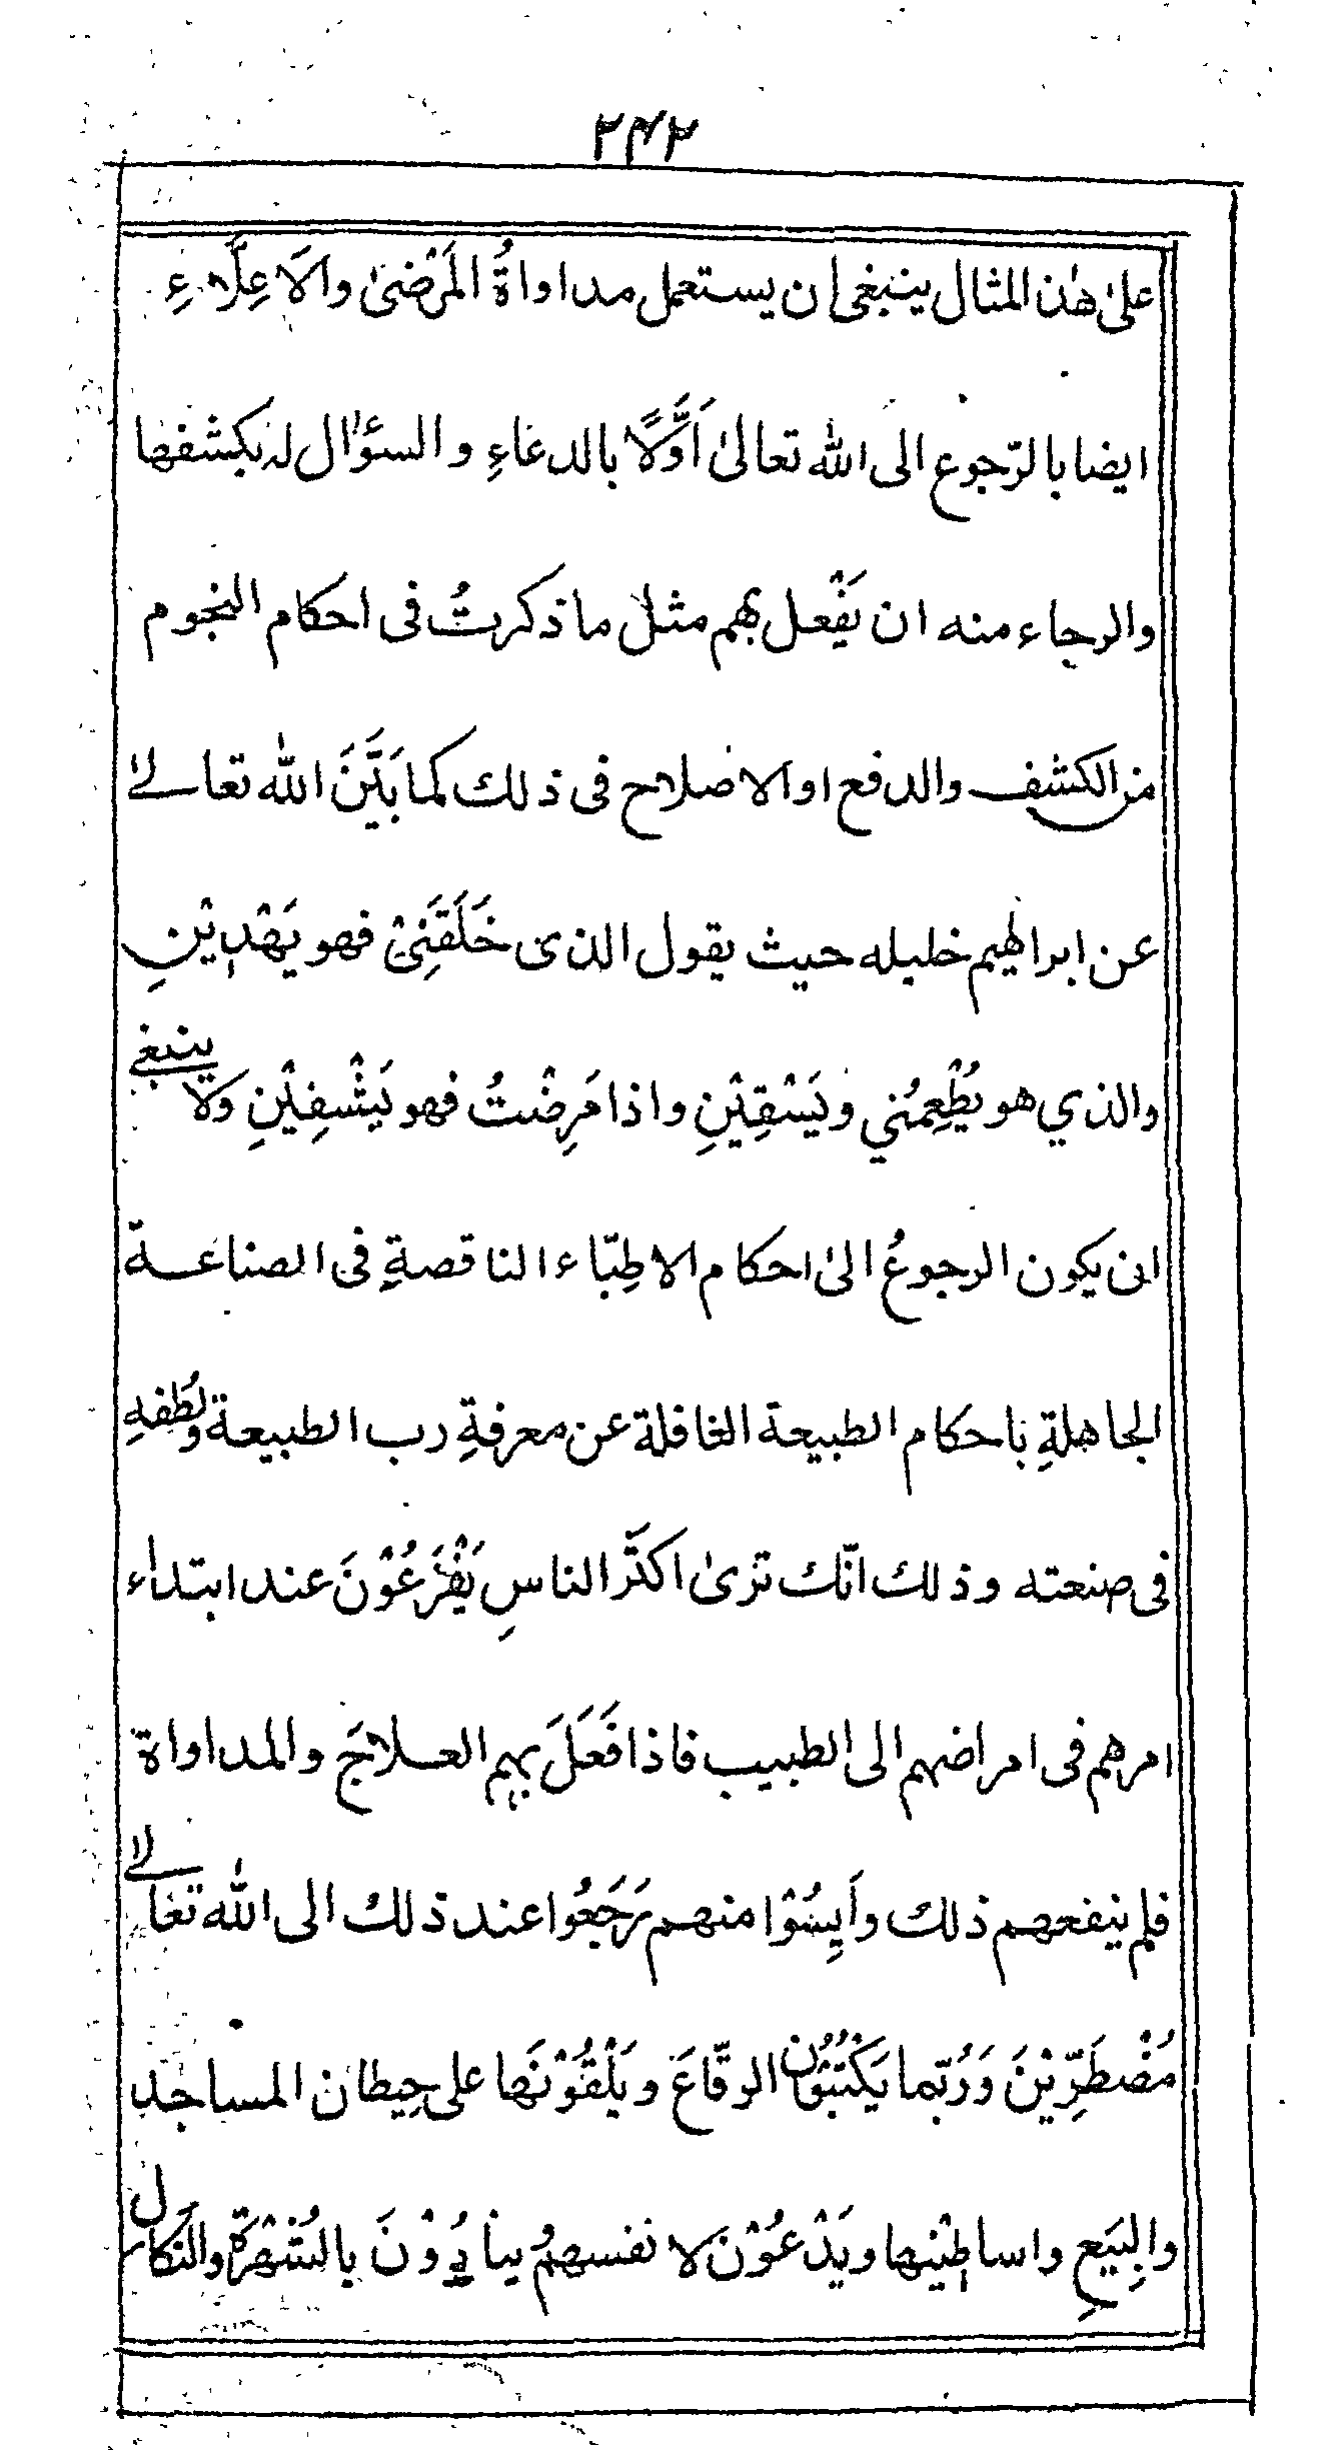 ۲۴۲
علىٰ هٰذا المثال ينبغى ان يستعمل مداواةُ المَرْضىٰ والاَعِلّاءِ
ايضا بالرّجوع الى الله تعالىٰ اَوَّلًا بالدعاءِ والسؤال له بكشفها
والرجاء منه ان يَفْعل بهم مثل ما ذكرتُ فى احكام النجوم
من الكشف والدفع او الاصلاح فى ذلك كما بَيَّنَ الله تعالىٰ
عن ابراهيم خليله حيث يقول الذى خَلَقَنِىْ فهو يَهْدِيْنِ
والذي هو يُطْعِمُني ويَسْقِيْنِ واذا مَرِضْتُ فهو يَشْفِيْنِ ولا ينبغي
ان يكون الرجوعُ الىٰ احكام الاطِبّاء الناقصةِ فى الصناعة
الجاهلةِ باحكام الطبيعة الغافلة عن معرفةِ رب الطبيعة ولُطْفِهِ
فى صنعته وذلك انّك ترىٰ اكثَر الناسِ يَفْزَعُوْنَ عند ابتداء
امرهم فى امراضهم الى الطبيب فاذا فَعَلَ بهم العلاجَ والمداواة
فلم ينفعهم ذلك وأَيِسُوْا منهم رَجَعُوا عند ذلك الى الله تعالىٰ
مُضْطَرِّيْنَ وَرُبّما يَكْتُبُوْن الرقّاعَ ويَلْقُوْنَها على حِيطان المساجد
والبِيَعِ واساطِيْنها ويَدْعُوْنَ لانفسهمُ ينادُوْنَ بالشُهْرَةِ والنَكال